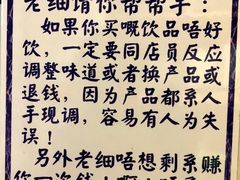 老细请你帮帮手：
如果你买嘅饮品唔好
饮，一定要同店员反应
调整味道或者换产品或
退钱，因为产品都系人
手现调，容易有人为失
误！
另外老细唔想剩系赚